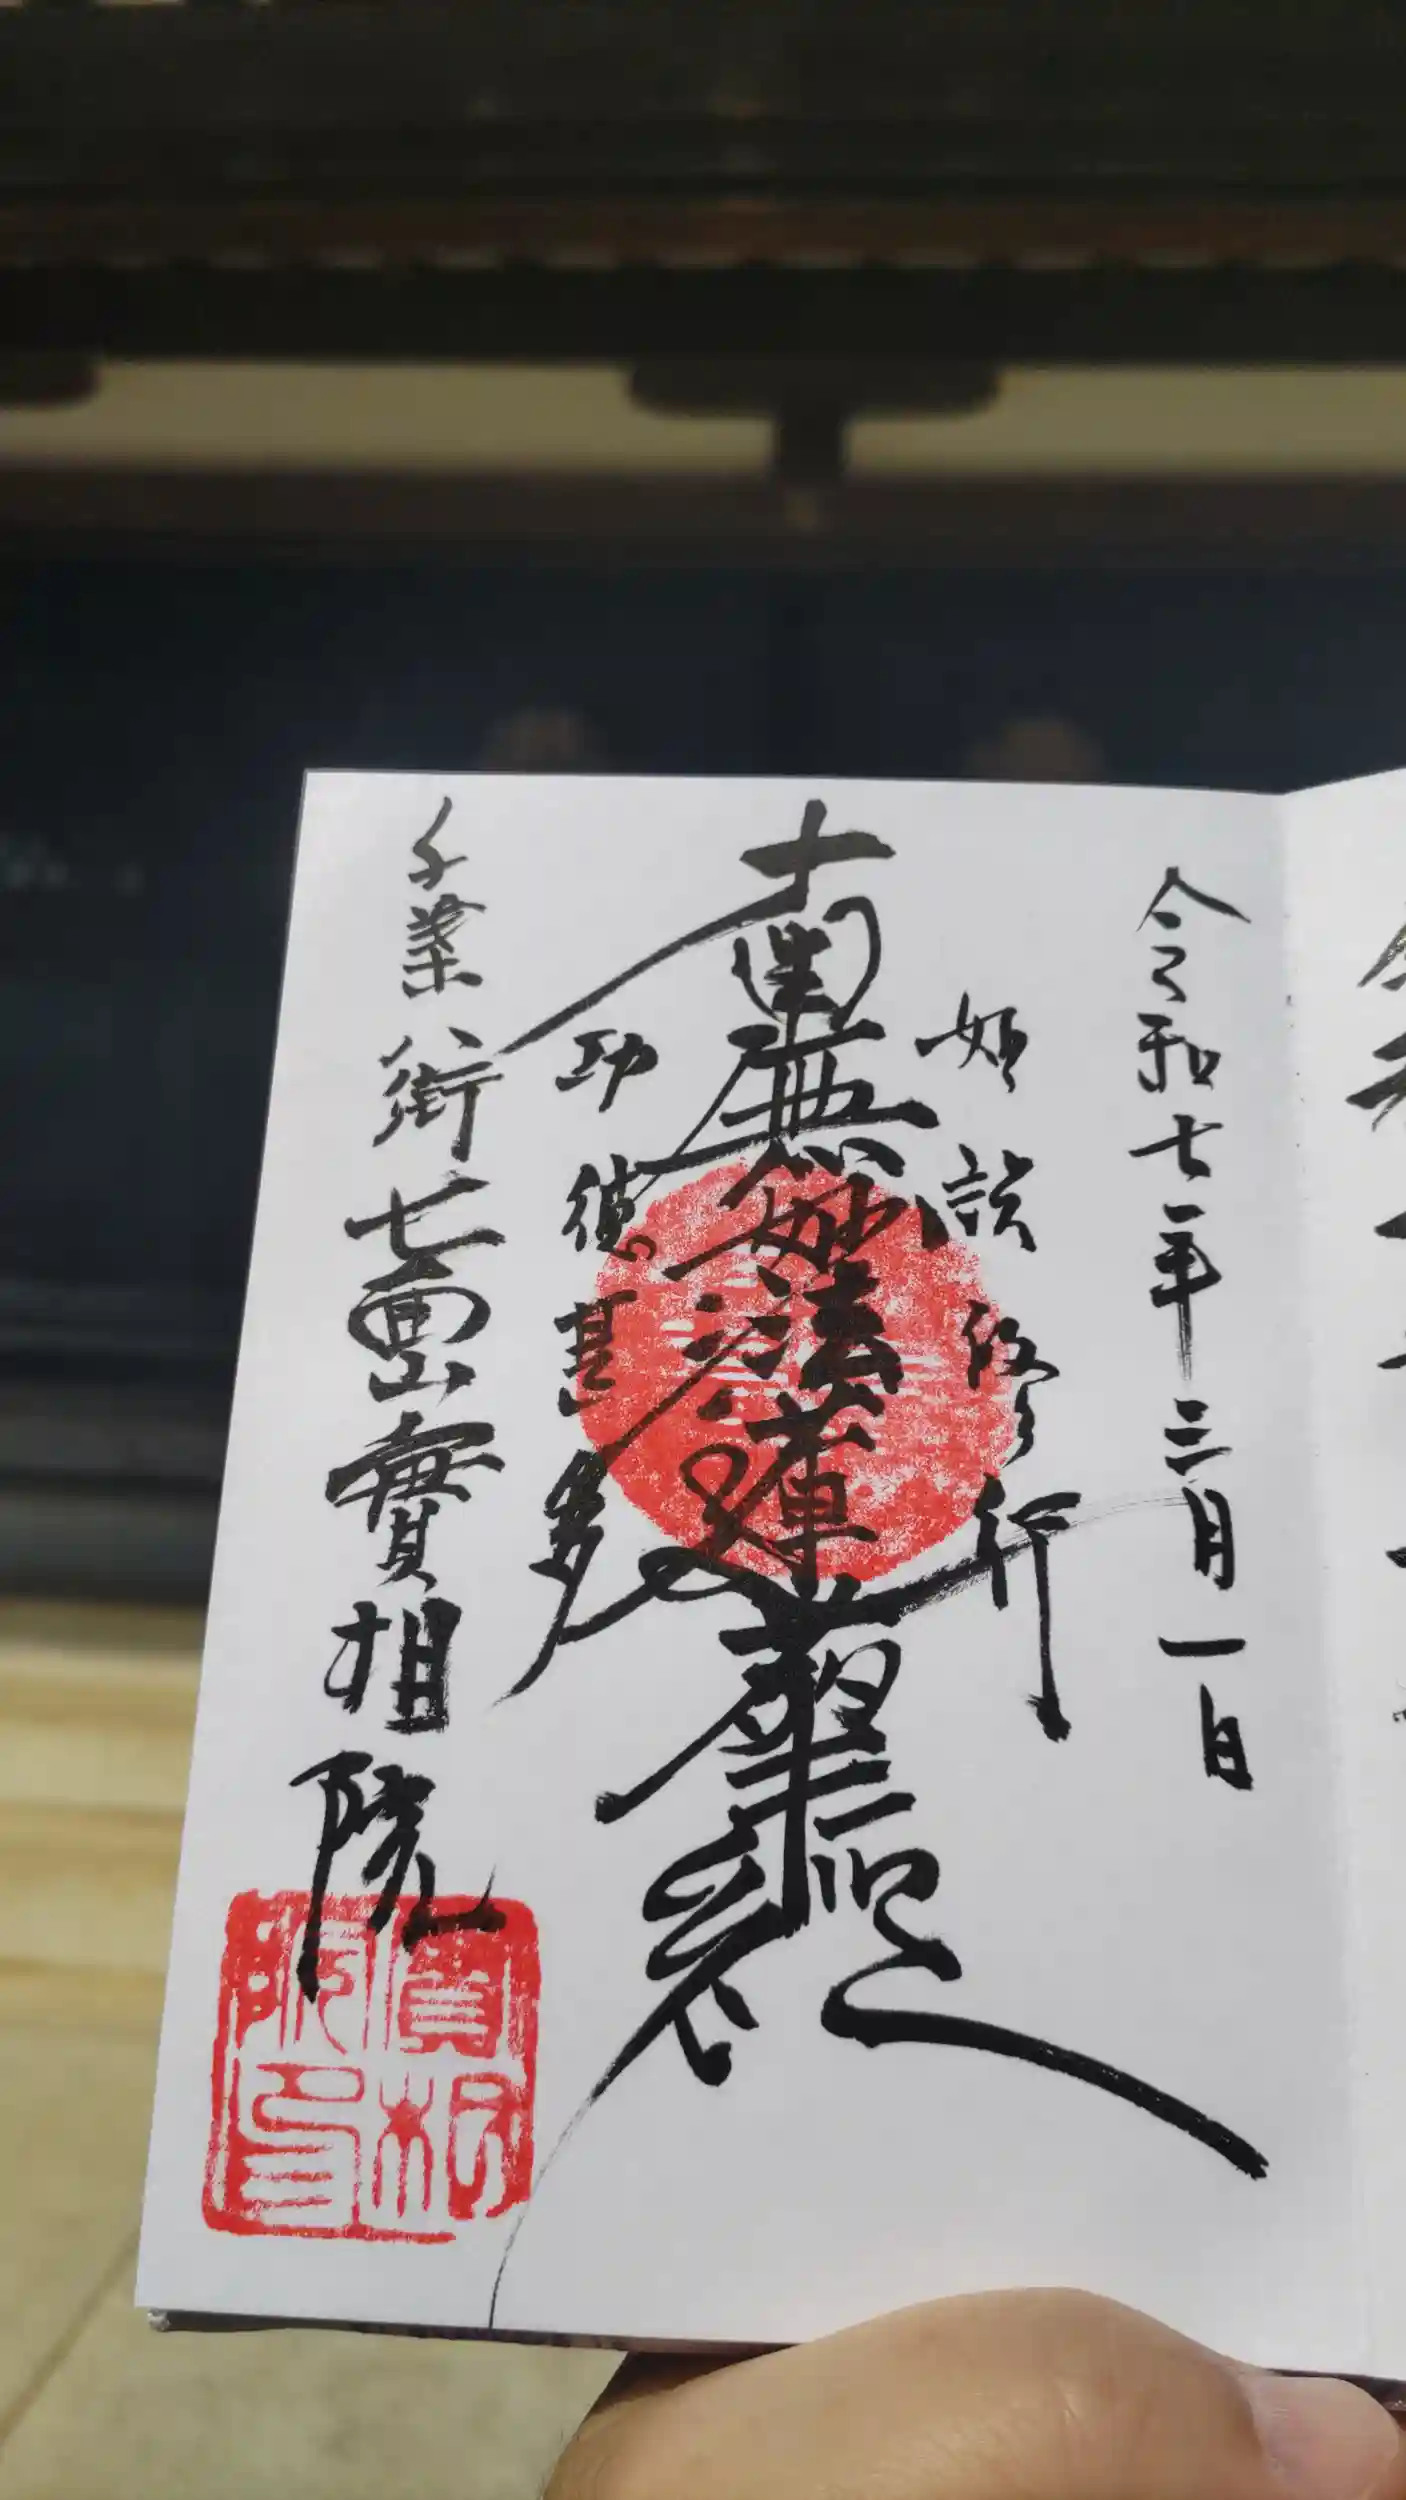 令和七年三月一日
如説修行
南無妙法蓮華經
功徳甚多
千葉 七面山實相院
實相
院印